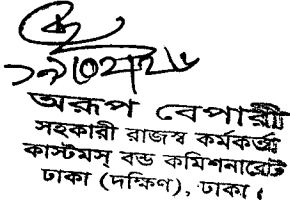 অরূপ বেপারী
সহকারী রাজস্ব কর্মকর্তা
কাস্টমস্ বন্ড কমিশনারেট
ঢাকা (দক্ষিণ), ঢাকা।